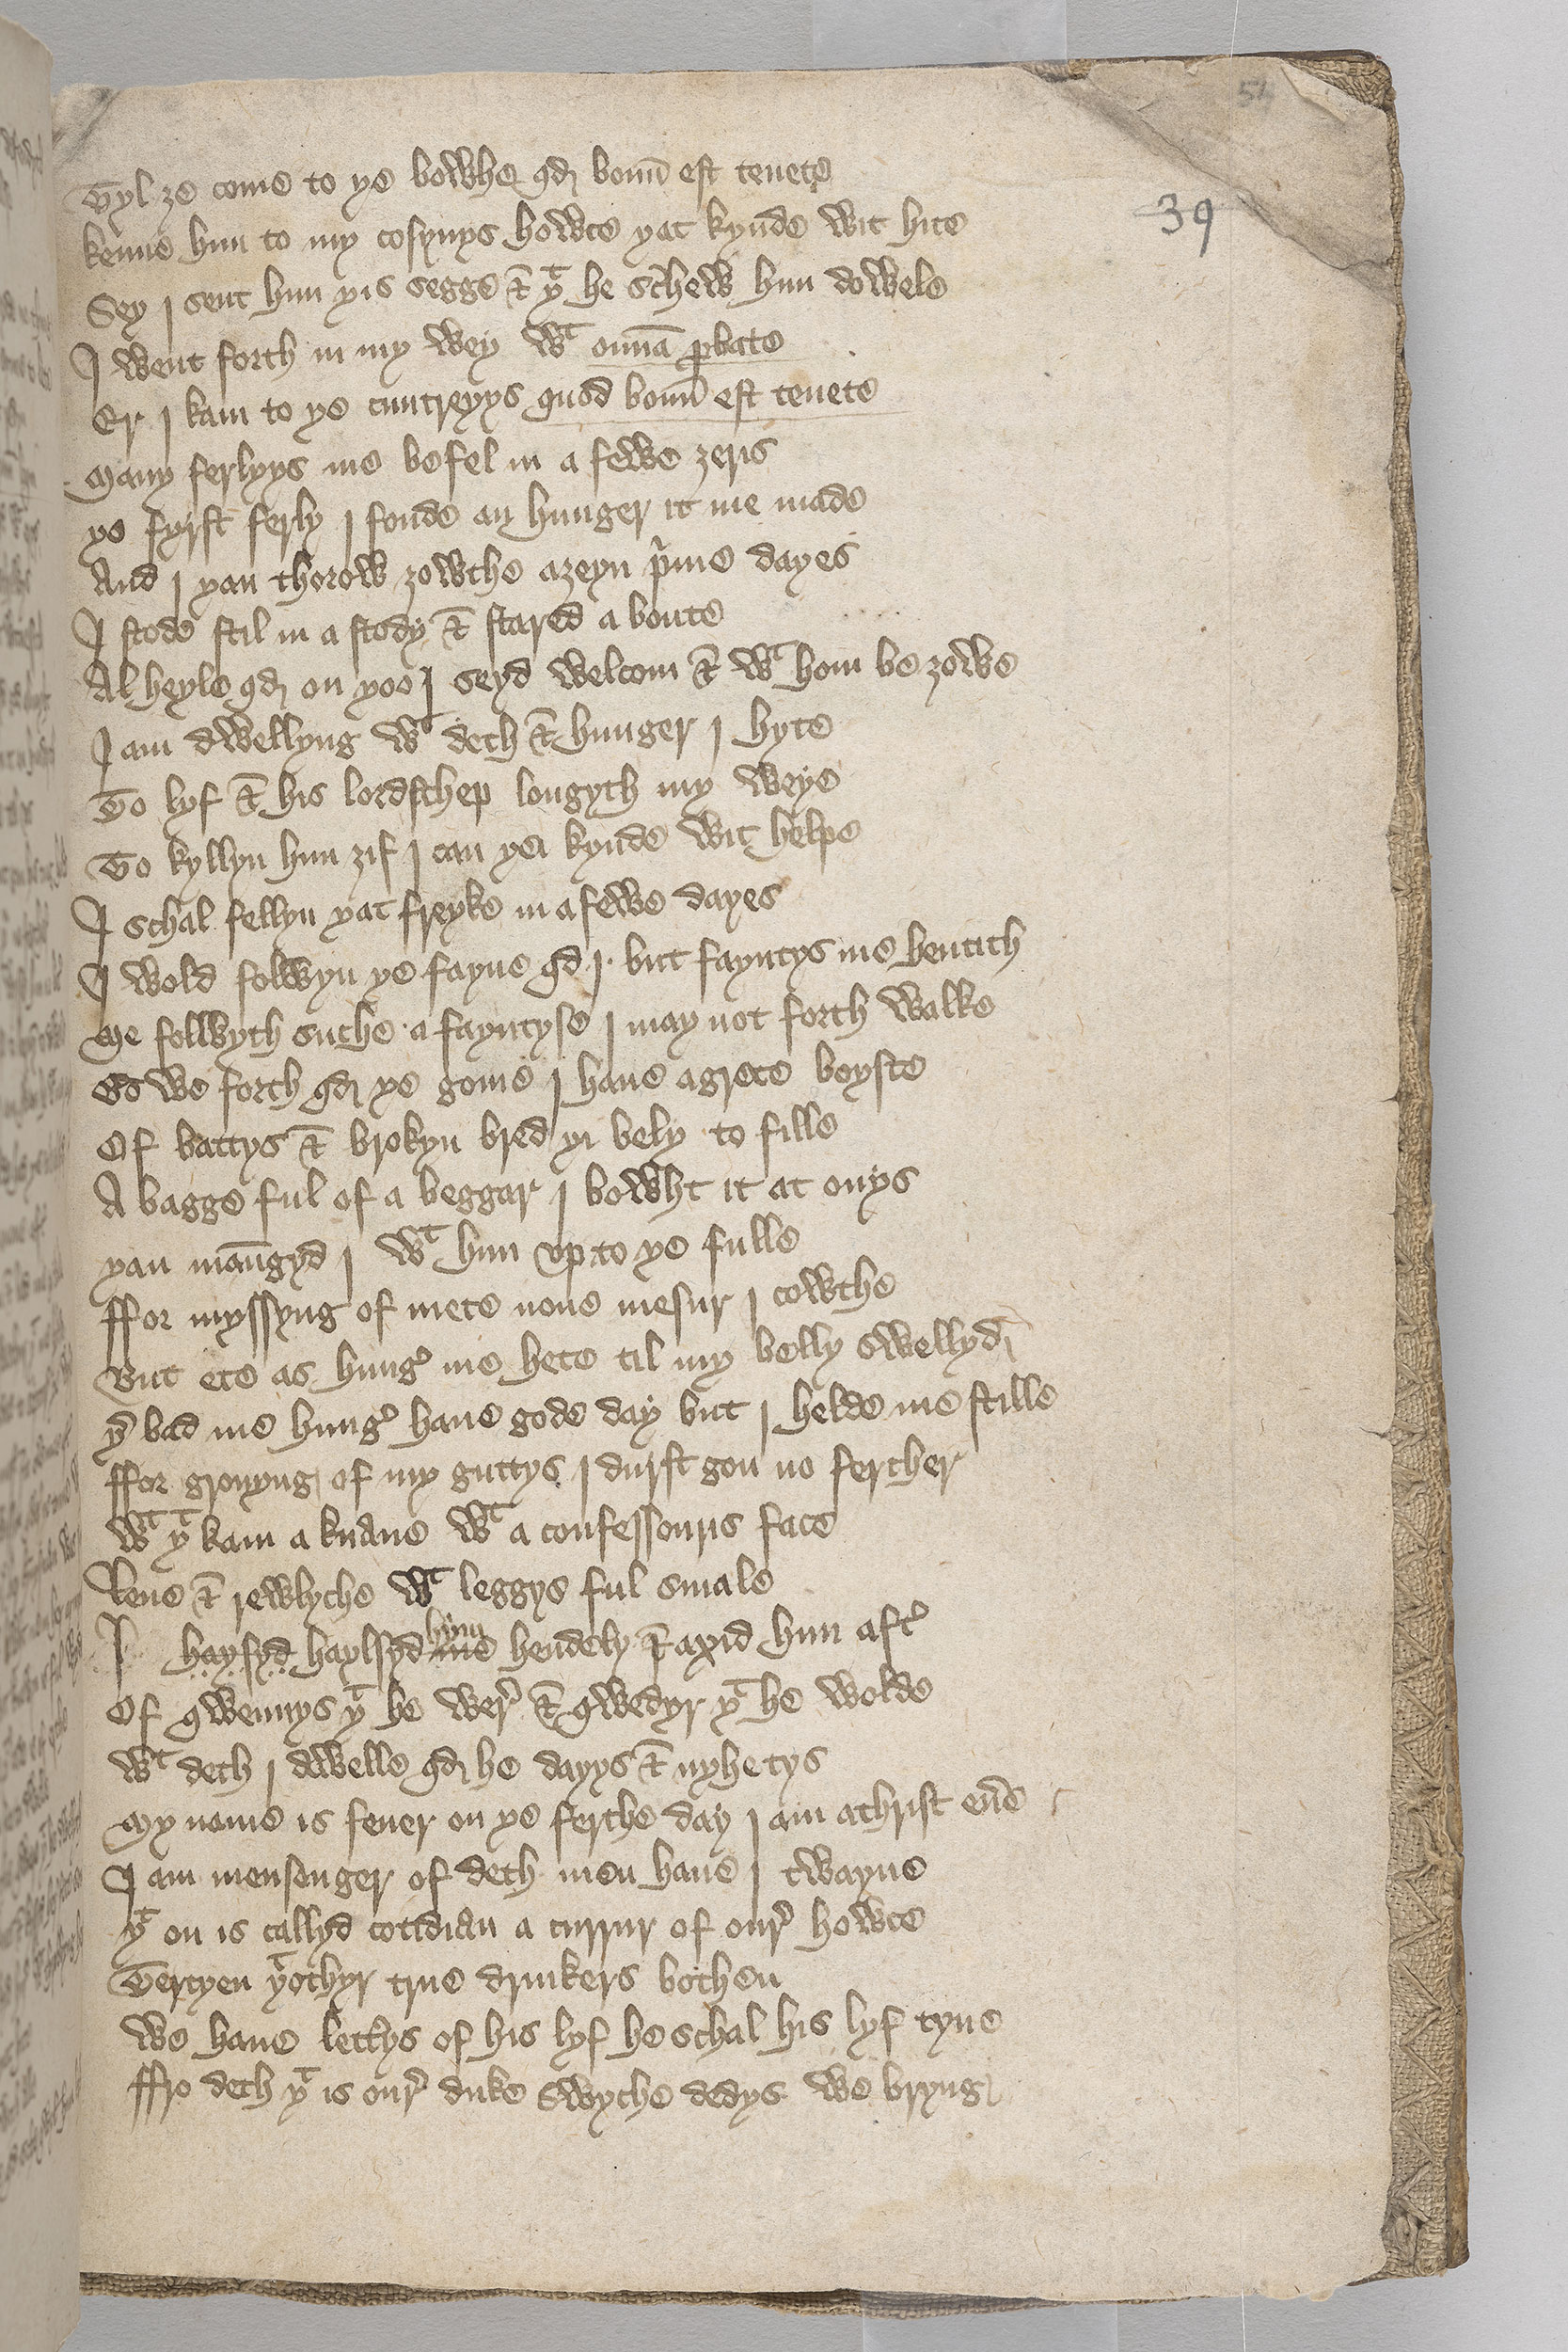 54
39
Tyl ze come to ye bowhe qd bonū est tenete
kenne hym to my cosynys howce yat kynde wit hite
Sey j sent hym yis segge & yᵗ he schew hym dowele
I went forth in my wey wᵗ omīa ꝓbate
Er j kam to ye cuntreyys quod bonū est tenete
Many ferlyys me befel in a fewe zeris
ye fyrst ferly j fonde an hunger it me made
And j yan thorow zowthe azeyn pͥme dayes
I stode stil in a stody & stared a boute
Al heyle qd on yoo j seyd welcom & wᵗ hom be zowe
I am dwellyng wᵗ deth & hunger j hyte
To lyf & his lordschep longyth my weye
To kyllyn hym zif j can yei kynde wit helpe
I schal fellyn yat freyke in a fewe dayes
I wold folwyn ye fayne qd j but fayntys me hentith
Me folwyth suche a fayntyse j may not forth walke
Go we forth qd ye gome j haue a grete boyste
Of battys & brokyn bred yi bely to fille
A bagge ful of a beggar j bowht it at onys
yan māūgyd j wᵗ hym vp to ye fulle
ffor myssyng of mete none mesur j cowthe
But ete as hungʳ me hete til my belly swellyd
yʳ bad me hungʳ haue gode day but j helde me stille
ffor gronyng of my guttys j durst gon no ferther
wᵗ yᵗ kam a knaue wᵗ a confessouris face
Lene & rewlyche wᵗ leggys ful smale
I haysyd haylsyd me hym hendely & axid hym aftʳ
Of qwennys yᵗ he werʳ & qwedyr yᵗ he wolde
wᵗ deth j dwelle qd he dayys & nyhetys
My name is feuer on ye ferthe day j am athrist eūe
I am mensenger of deth men haue j twayne
yᵗ on is callyd cotidian a currur of ourʳ howce
Tercyen yᵗ othyr true drinkers bothen
we haue lettʳys of his lyf he schal his lyf tyne
ffro deth yᵗ is ourʳ duke swyche dedys we bryng